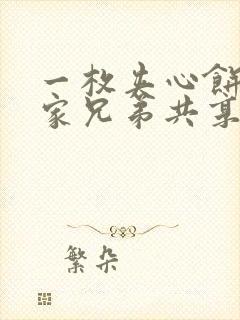 一枚夹心餅
家兄弟共某
繁朵